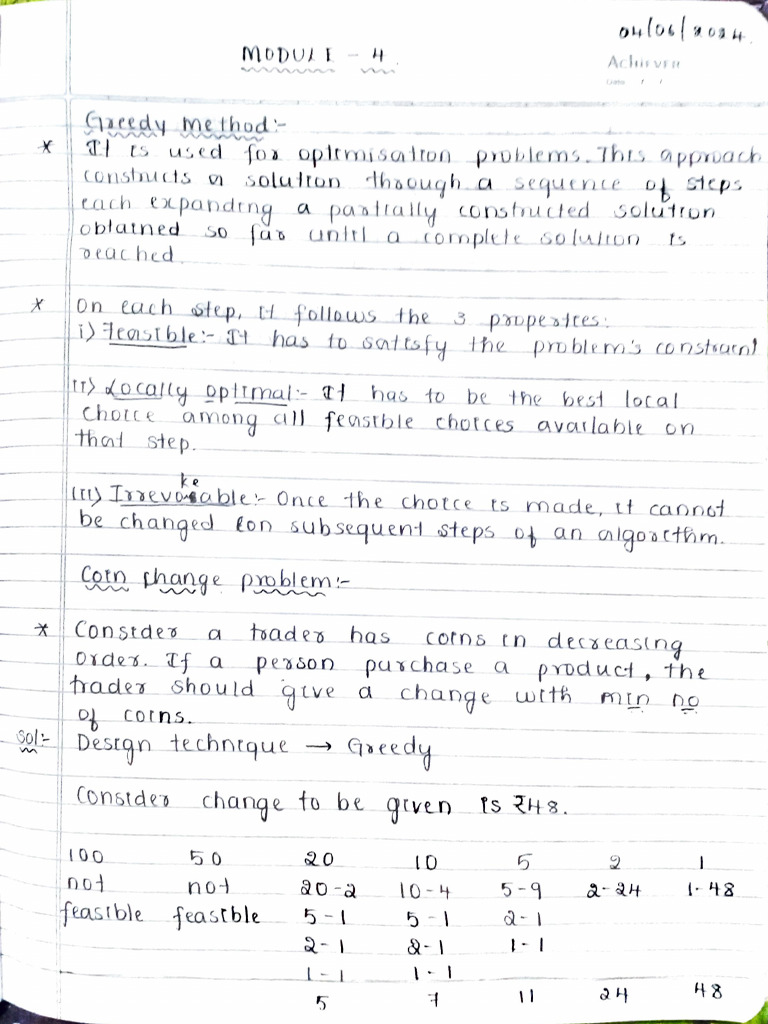 04/06/2024.
MODULE - 4.
Achiever
Greedy method:-
* It is used for optimisation problems. This approach
constructs a solution through a sequence of steps
each expanding a partially constructed solution
obtained so far until a complete solution is
reached.
* On each step, it follows the 3 properties:
i) Feasible:- It has to satisfy the problem's constraint
ii) Locally optimal:- It has to be the best local
choice among all feasible choices available on
that step.
ke
iii) Irrevocable:- Once the choice is made, it cannot
be changed on subsequent steps of an algorithm.
Coin change problem:-
* Consider a trader has coins in decreasing
order. If a person purchase a product, the
trader should give a change with min no
of coins.
Sol:- Design technique → Greedy
Consider change to be given is ₹48.
100 50 20 10 5 2 1
not not 20-2 10-4 5-9 2-24 1-48
feasible feasible 5-1 5-1 2-1
2-1 2-1 1-1
1-1 1-1
5 7 11 24 48